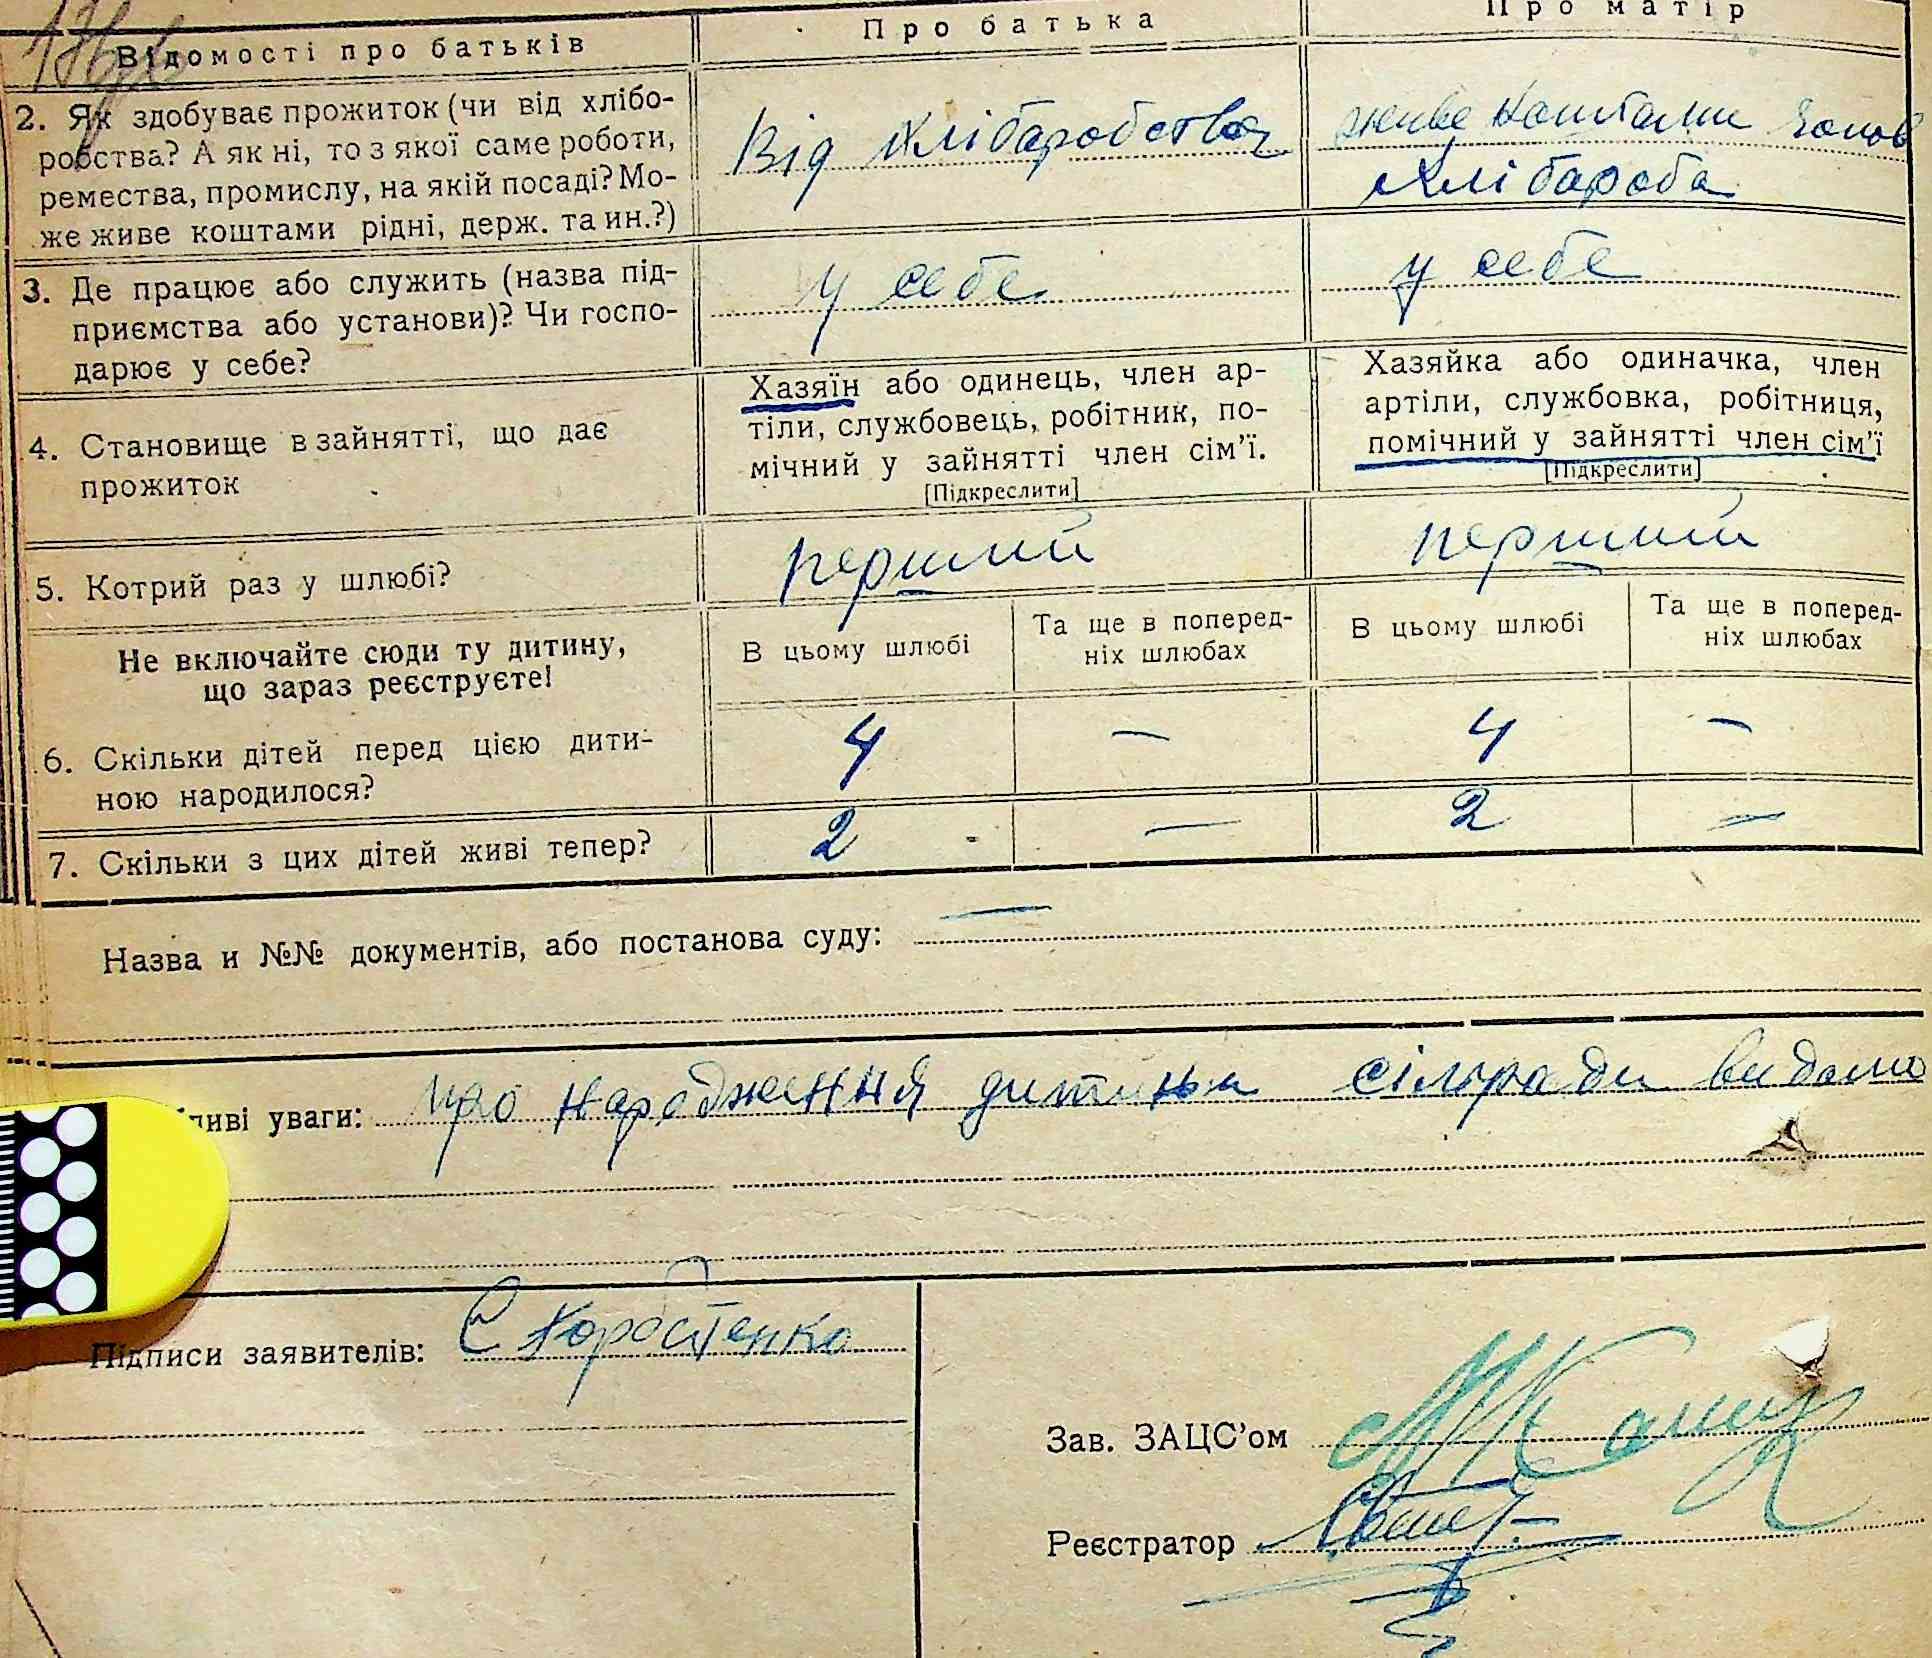 Відомості про батьків
Про батька
Про матір
2. Як здобуває прожиток (чи від хлібо-
робства? А як ні, то з якої саме роботи,
ремества, промислу, на якій посаді? Мо-
же живе коштами рідні, держ. та ин.?)
Від хлібаробства
живе коштами
хлібароба
3. Де працює або служить (назва під-
приємства або установи)? Чи госпо-
дарює у себе?
у себе
у себе
4. Становище в зайнятті, що дає
прожиток
Хазяїн або одинець, член ар-
тіли, службовець, робітник, по-
мічний у зайнятті член сім'ї.
[Підкреслити]
Хазяйка або одиначка, член
артіли, службовка, робітниця,
помічний у зайнятті член сім'ї
[Підкреслити]
5. Котрий раз у шлюбі?
перший
перший
Не включайте сюди ту дитину,
що зараз реєструєте!
В цьому шлюбі
Та ще в поперед-
ніх шлюбах
В цьому шлюбі
Та ще в поперед-
ніх шлюбах
6. Скільки дітей перед цією дити-
ною народилося?
4 — 4 —
7. Скільки з цих дітей живі тепер?
2 — 2 —
Назва и №№ документів, або постанова суду: —
ливі уваги: про народження дитини сільради видано
Підписи заявителів: Є Коростенко
Зав. ЗАЦС'ом
Реєстратор